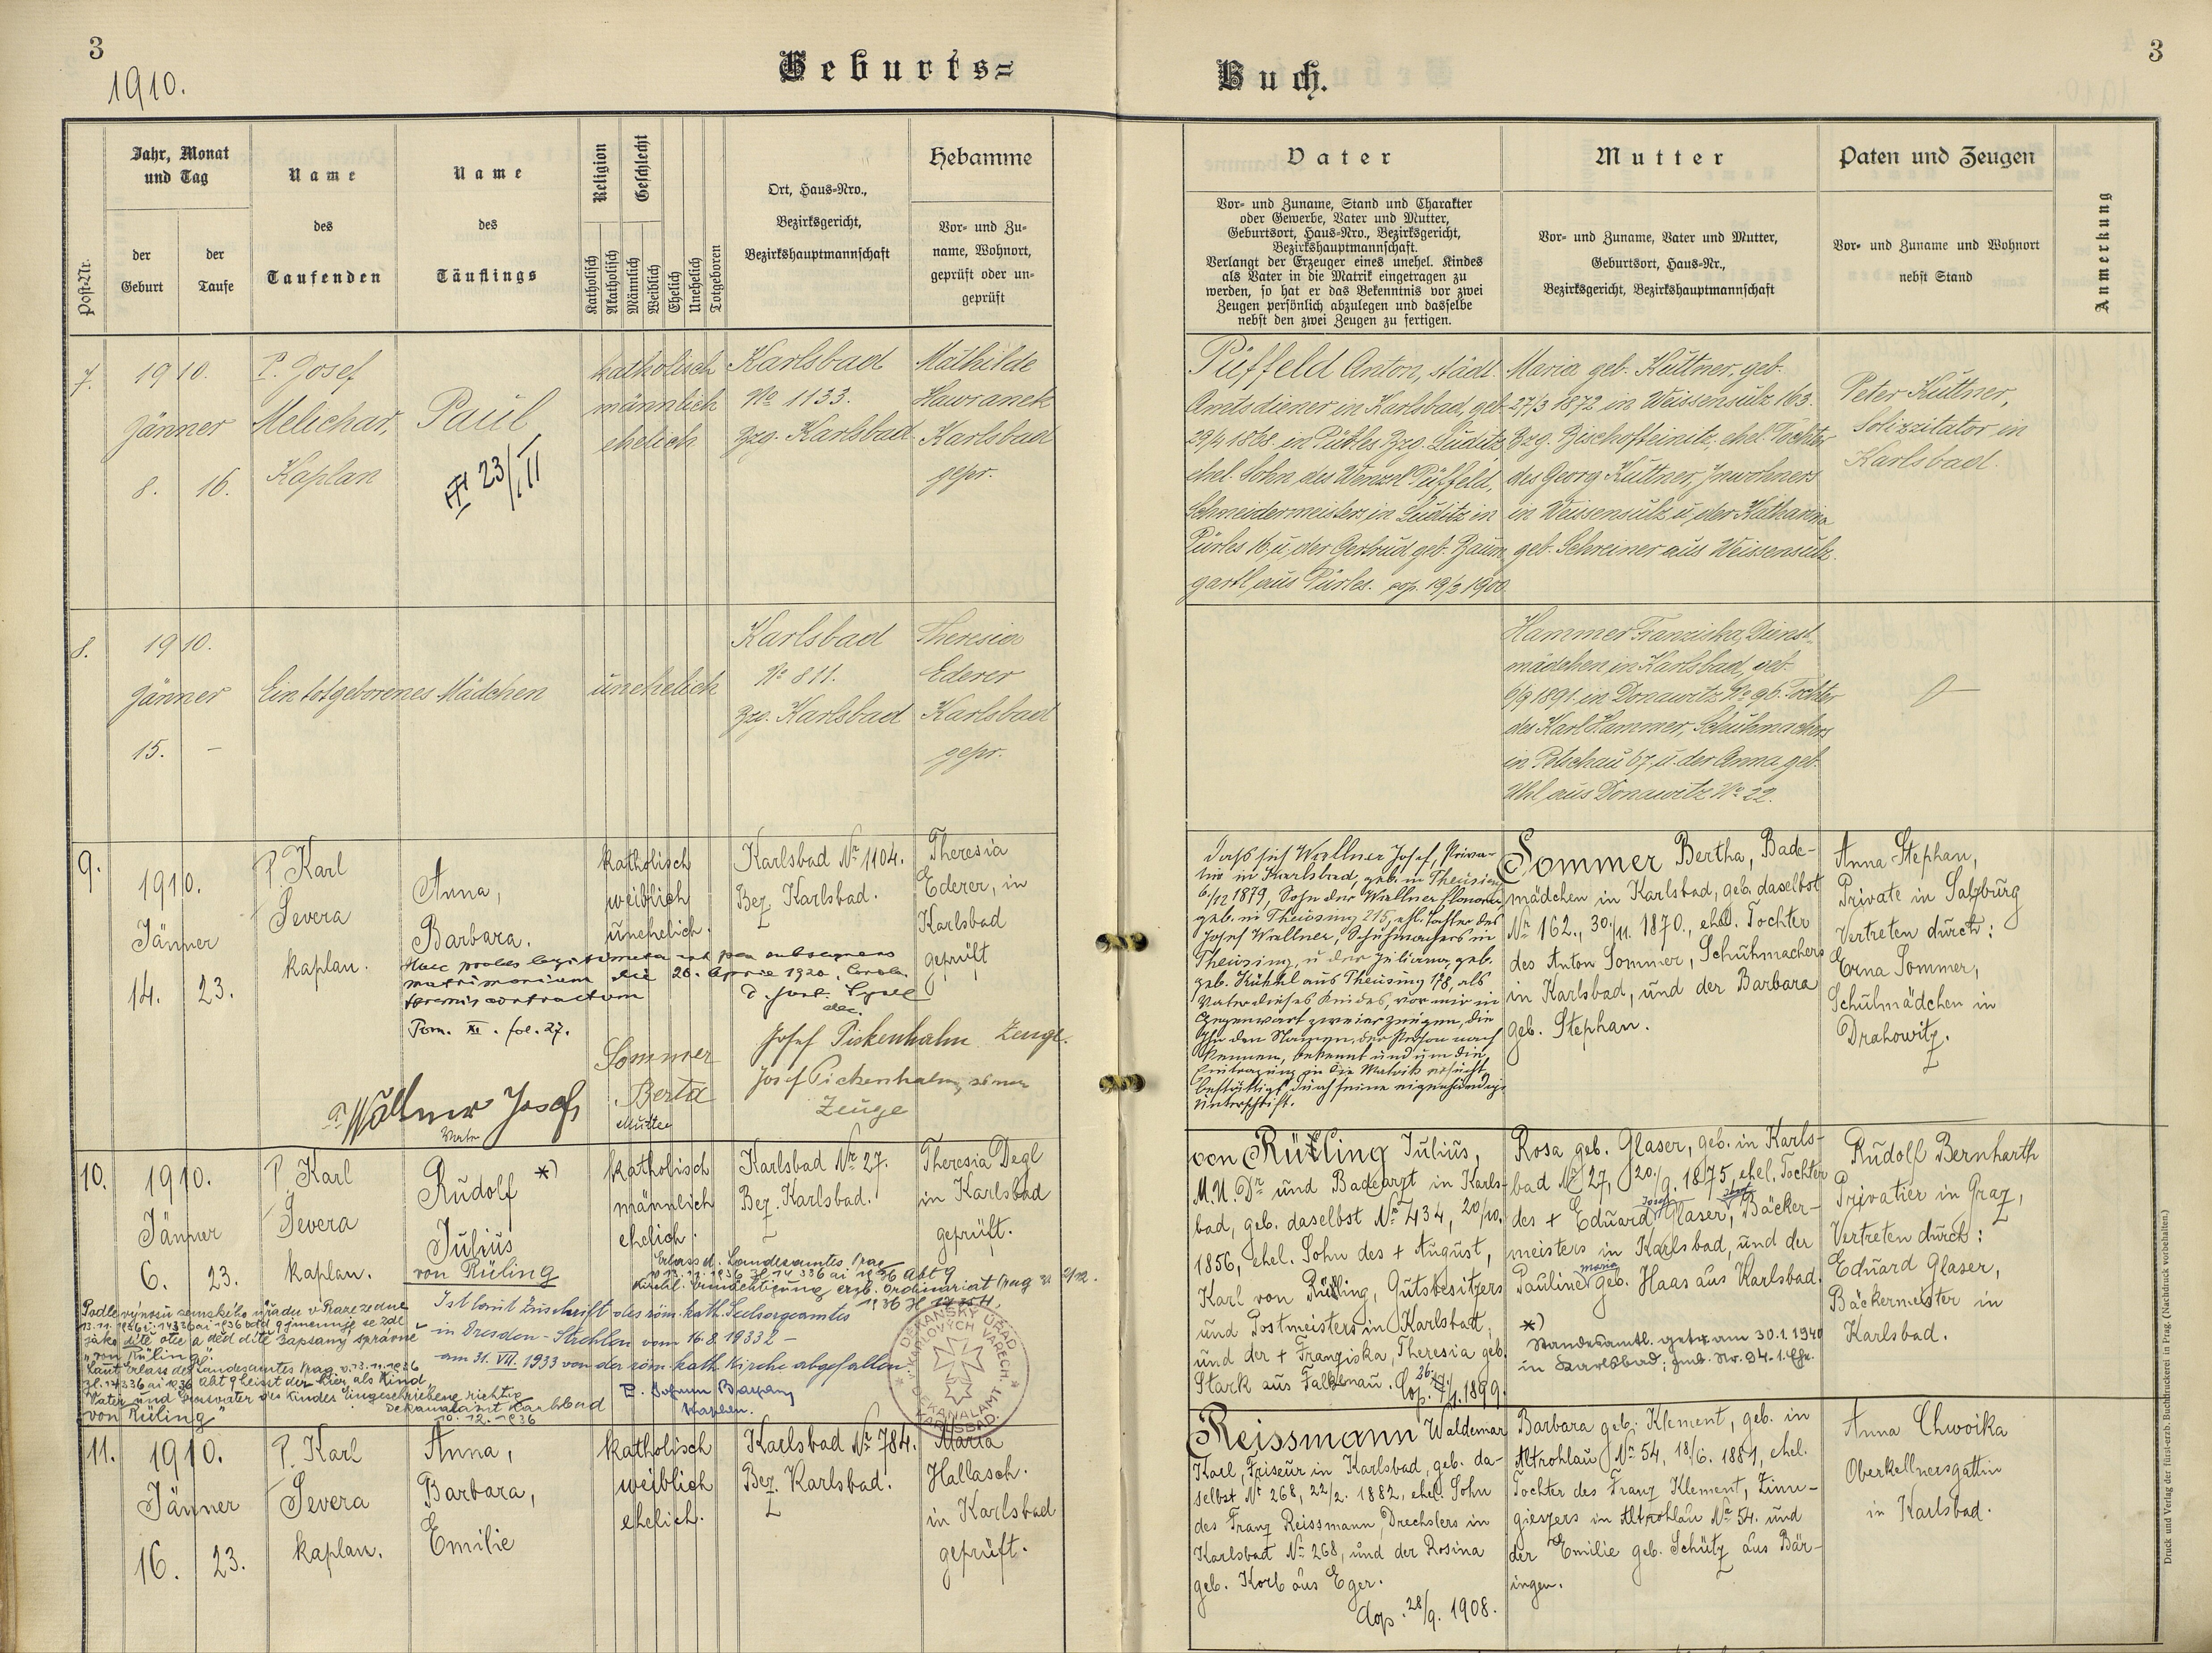 3
1910.
Geburts=
Buch.
3
Post-Nr.
Jahr, Monat
und Tag
der
Geburt
der
Taufe
Name
des
Taufenden
Name
des
Täuflings
Religion
Katholisch
Akatholisch
Geschlecht
Männlich
Weiblich
Ehelich
Unehelich
Totgeboren
Ort, Haus-Nro.,
Bezirksgericht,
Bezirkshauptmannschaft
Hebamme
Vor- und Zu-
name, Wohnort,
geprüft oder un-
geprüft
Vater
Vor- und Zuname, Stand und Charakter
oder Gewerbe, Vater und Mutter,
Geburtsort, Haus-Nro., Bezirksgericht,
Bezirkshauptmannschaft.
Verlangt der Erzeuger eines unehel. Kindes
als Vater in die Matrik eingetragen zu
werden, so hat er das Bekenntnis vor zwei
Zeugen persönlich abzulegen und dasselbe
nebst den zwei Zeugen zu fertigen.
Mutter
Vor- und Zuname, Vater und Mutter,
Geburtsort, Haus-Nr.,
Bezirksgericht, Bezirkshauptmannschaft
Paten und Zeugen
Vor- und Zuname und Wohnort
nebst Stand
Anmerkung
7.
1910.
Jänner
8. 16.
P. Josef
Melichar,
Kaplan
Paul
23/III
katholisch
männlich
ehelich
Karlsbad
No 1133.
Bzg. Karlsbad
Mathilde
Hawranek
Karlsbad
gepr.
Püffeld Anton, städt.
Amtsdiener in Karlsbad, geb.
29/4 1868 in Pürles Bzg. Luditz,
ehel. Sohn des Wenzel Püffeld,
Schneidermeisters in Luditz in
Pürles 16 u. der Gertrud geb. Baum
gartl aus Pürles. cop. 19/2 1900
Maria geb. Küttner, geb.
27/3 1872 in Weissensulz 163.
Bzg. Bischofteinitz, ehel. Tochter
des Georg Küttner, Inwohners
in Weissensulz u. der Katharina
geb. Schreiner aus Weissensulz.
Peter Küttner,
Solizzitator in
Karlsbad.
8.
1910.
Jänner
15. -
Ein totgeborenes Mädchen
unehelich
Karlsbad
No 811.
Bzg. Karlsbad
Theresia
Ederer
Karlsbad
gepr.
Hammer Franziska, Dienst-
mädchen in Karlsbad, geb.
6/9 1891. in Donawitz No 96. Tochter
des Karl Hammer, Schuhmachers
in Petschau 67, u. der Anna geb.
Uhl aus Donawitz No 22.
9.
1910.
Jänner
14. 23.
P. Karl
Severa
kaplan.
Anna,
Barbara.
katholisch
weiblich
unehelich.
Karlsbad Nr 1104.
Bez. Karlsbad.
Theresia
Ederer, in
Karlsbad
geprüft
Haec proles legitimata est per subsequens
matrimonium die 26. Aprile 1920,
contractum
dec.
Tom. XI. fol. 27.
Wallner Josef
Vater
Sommer
Berta
Mutter
Josef Pickenhahn Zeuge.
Josef Pickenhahn,
Zeuge
Dass sich Wallner Josef, Priva-
tier in Karlsbad, geb. in Theusing
6/12 1879, Sohn der Wallner Eleonora,
geb. in Theusing 215, ehl. Tochter des
Josef Wallner, Schuhmachers in
Theusing, u. der Juliana, geb.
aus Theusing 178, als
Vater dieses Kindes, vor mir in
Gegenwart zweier Zeugen, die
ihn dem Namen, der Person nach
kennen, bekennt und um die
Eintragung in die Matrik ersucht,
bestättigt durch seine eigenhändige
Unterschrift.
Sommer Bertha, Bade-
mädchen in Karlsbad, geb. daselbst
Nr 162., 30./11. 1870., ehel. Tochter
des Anton Sommer, Schuhmachers
in Karlsbad, und der Barbara
geb. Stephan.
Anna Stephan,
Private in Salzburg
Vertreten durch:
Erna Sommer,
Schulmädchen in
Drahowitz.
10.
1910.
Jänner
6. 23.
P. Karl
Severa
kaplan.
Rudolf *)
Julius
von Rüling
katholisch
männlich
ehelich.
Karlsbad Nr 27.
Bez. Karlsbad.
Theresia Degl
in Karlsbad
geprüft.
Erlass d. Landesamtes Prag
v. 13.11.1936 Zl 14 336 ai 1936 Abt 9
Kirchl. Ermächtigung erzb. Ordinariat Prag
Ist laut Zuschrift des röm. kath. Seelsorgeamtes
in Dresden-Strehlen vom 16.8.1933
am 31. VII. 1933 von der röm. kath. Kirche abgefallen.
Kaplan.
DĚKANSKÝ ÚŘAD
V KARLOVÝCH VARECH.
DEKANALAMT
KARLSBAD.
Podle výnosu zemského úřadu v Praze ze dne
13.11.1936 č. 14336 ai 1936 odd 9 jmenuje se zde
jako dítě otec a děd dítě zapsaný správně
"von Rüling".
"Laut Erlass des Landesamtes Prag v. 13.11.1936
Zl. 14336 ai 1936 Abt 9 heisst der hier als Kind,
Vater und Grossvater des Kindes Eingeschriebene richtig
von Rüling"
Dekanalamt Karlsbad
10. 12. 1936
von Rüling Julius,
M.U.Dr und Badearzt in Karls-
bad, geb. daselbst Nr 434, 20/10.
1856, ehel. Sohn des + August,
Karl von Rüling, Gutsbesitzers
und Postmeisters in Karlsbad,
und der + Franziska, Theresia geb.
Stark aus Falkenau. Cop. 26. 1899.
Rosa geb. Glaser, geb. in Karls-
bad Nr 27, 20./9. 1875, ehel. Tochter
des + Eduard Josef Glaser, Bäcker-
meisters in Karlsbad, und der
Pauline Maria geb. Haas aus Karlsbad.
*)
Standesamtl. getr. am 30.1.1940
in Karlsbad;
Rudolf Bernharth
Privatier in Graz,
Vertreten durch:
Eduard Glaser,
Bäckermeister in
Karlsbad.
11.
1910.
Jänner
16. 23.
P. Karl
Severa
kaplan.
Anna,
Barbara,
Emilie
katholisch
weiblich
ehelich.
Karlsbad Nr 784.
Bez. Karlsbad.
Maria
Hallasch.
in Karlsbad
geprüft.
Reissmann Waldemar
Karl, Friseur in Karlsbad, geb. da-
selbst Nr 268, 22/2. 1882, ehel. Sohn
des Franz Reissmann, Drechslers in
Karlsbad Nr 268, und der Rosina
geb. Korb aus Eger.
Cop. 28/9. 1908.
Barbara geb. Klement, geb. in
Altrohlau Nr 54, 18/6. 1881, ehel.
Tochter des Franz Klement, Zinn-
giessers in Altrohlau Nr 54. und
der Emilie geb. Schütz aus Bär-
ingen.
Anna Chwoika
Oberkellnersgattin
in Karlsbad.
Druck und Verlag der fürst-erzb. Buchdruckerei in Prag. (Nachdruck vorbehalten.)